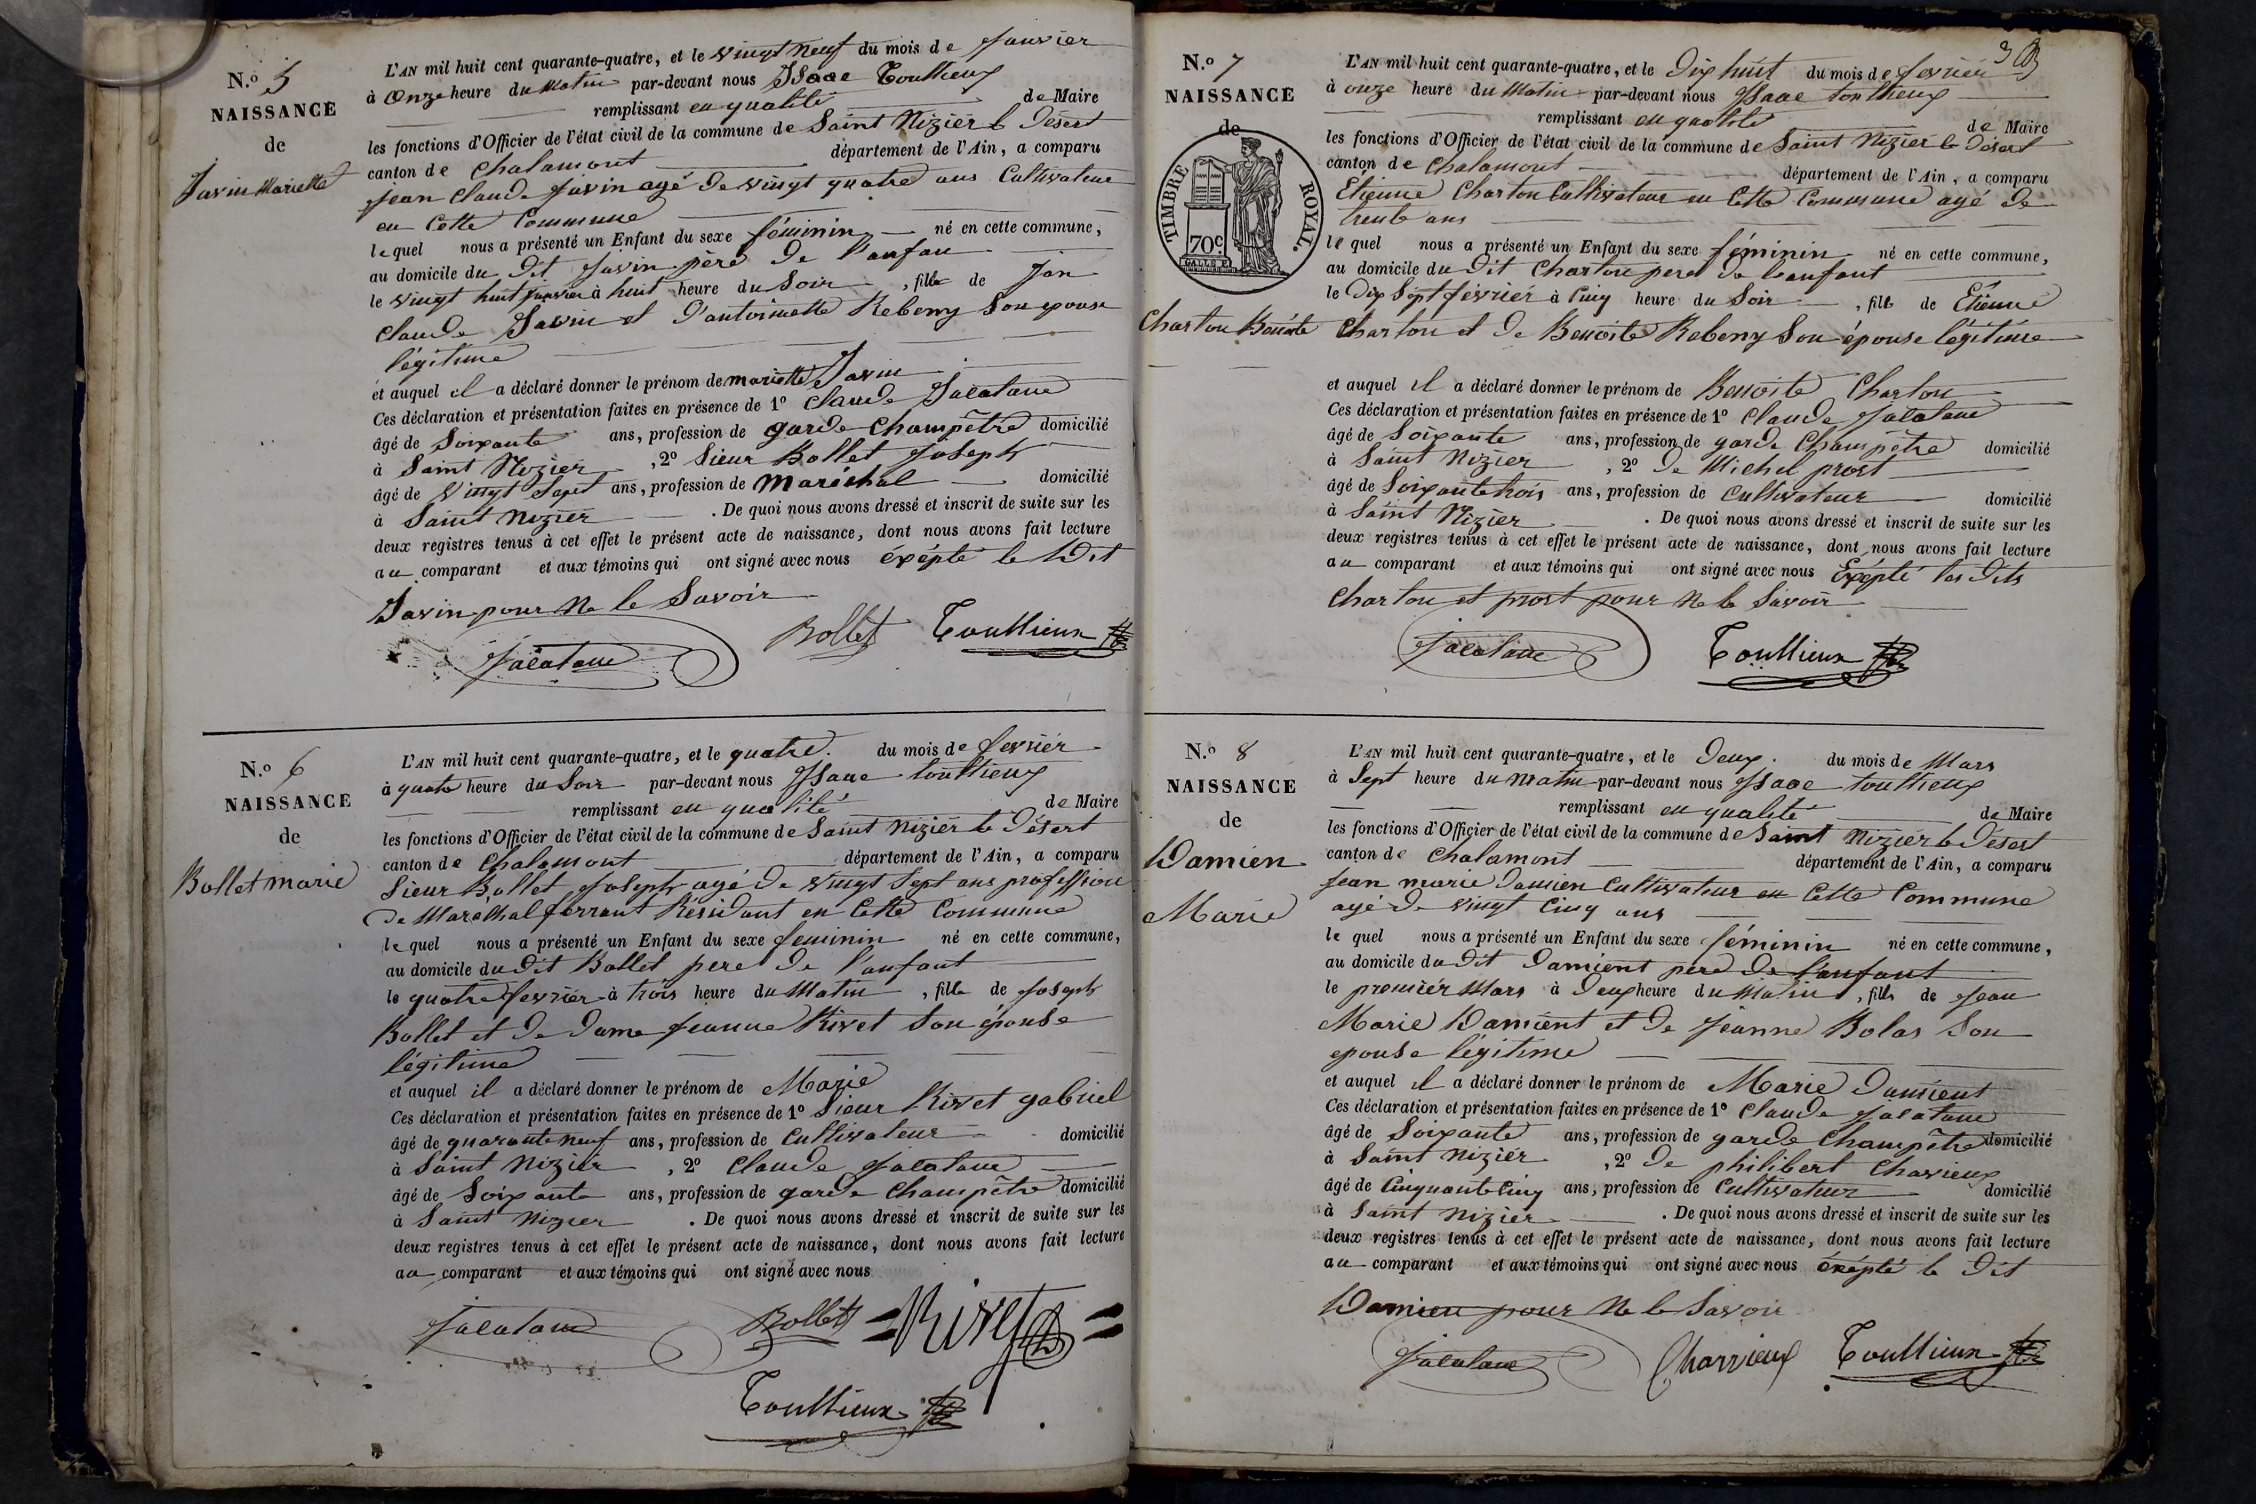 N.o 5
NAISSANCE
de
Javin Mariette
L'AN mil huit cent quarante-quatre, et le vingt neuf du mois de Janvier
à onze heure du Matin par-devant nous Isaac Toullieux
remplissant en qualité de Maire
les fonctions d'Officier de l'état civil de la commune de Saint Nizier le Désert
canton de Chalamont département de l'Ain, a comparu
jean Claude Javin agé de vingt quatre ans Cultivateur
en Cette Commune
le quel nous a présenté un Enfant du sexe féminin né en cette commune,
au domicile du dit Javin père de l'anfan
le vingt huit Janvier à huit heure du Soir, fille de Jan
Claude Javin et d'antoinette Rebeny Son epouse
légitime
et auquel il a déclaré donner le prénom de mariette Javin
Ces déclaration et présentation faites en présence de 1o Claude Jacatane
âgé de Soixante ans, profession de garde Champêtre domicilié
à Saint Nizier, 2o Sieur Bollet Joseph
âgé de Vingt Sept ans, profession de maréchal domicilié
à Saint Nizier. De quoi nous avons dressé et inscrit de suite sur les
deux registres tenus à cet effet le présent acte de naissance, dont nous avons fait lecture
au comparant et aux témoins qui ont signé avec nous éxépté le Dit
Javin pour Ne le Savoir
Jacatane Bollet Toullieux
N.o 6
NAISSANCE
de
Bollet marie
L'AN mil huit cent quarante-quatre, et le quatre. du mois de fevriér
à quatre heure du Soir par-devant nous Isaac toullieux
remplissant en qualité de Maire
les fonctions d'Officier de l'état civil de la commune de Saint Nizier le Désert
canton de Chalamont département de l'Ain, a comparu
Sieur Bollet Joseph agé de vingt Sept ans profession
de Maréchal ferrant Résidant en Cette Commune
le quel nous a présenté un Enfant du sexe feminin né en cette commune,
au domicile du dit Bollet pere de l'anfant
le quatre fevriér à trois heure du Matin, fille de Joseph
Bollet et de dame Jeanne Rivet Son épouse
légitime
et auquel il a déclaré donner le prénom de Marie
Ces déclaration et présentation faites en présence de 1o Sieur Rivet gabriel
âgé de quarante neuf ans, profession de Cultivateur domicilié
à Saint Nizier, 2o Claude Jacatane
âgé de Soixante ans, profession de garde Champêtre domicilié
à Saint Nizier. De quoi nous avons dressé et inscrit de suite sur les
deux registres tenus à cet effet le présent acte de naissance, dont nous avons fait lecture
au comparant et aux témoins qui ont signé avec nous
Jacatane Bollet =Rivet=
Toullieux
3
N.o 7
NAISSANCE
de
TIMBRE ROYAL.
70c
Charton Benoite
L'AN mil huit cent quarante-quatre, et le Dix huit du mois de fevriér
à onze heure du Matin par-devant nous Isaac toullieux
remplissant en qualité de Maire
les fonctions d'Officier de l'état civil de la commune de Saint Nizier le Désert
canton de Chalamont département de l'Ain, a comparu
Etienne Charton Cultivateur en Cette Commune agé de
trente ans
le quel nous a présenté un Enfant du sexe féminin né en cette commune,
au domicile du dit Charton pere de l'anfant
le dix Sept fevriér à Cinq heure du Soir, fille de Etienne
Charton et de Benoite Rebeny Son épouse légitime
et auquel il a déclaré donner le prénom de Benoite Charton
Ces déclaration et présentation faites en présence de 1o Claude Jacatane
âgé de Soixante ans, profession de garde Champêtre domicilié
à Saint Nizier, 2o de Michel prost
âgé de Soixante trois ans, profession de Cultivateur domicilié
à Saint Nizier. De quoi nous avons dressé et inscrit de suite sur les
deux registres tenus à cet effet le présent acte de naissance, dont nous avons fait lecture
au comparant et aux témoins qui ont signé avec nous Exépté les Dits
Charton et prost pour Ne le Savoir
Jacatane Toullieux
N.o 8
NAISSANCE
de
Damien
Marie
L'AN mil huit cent quarante-quatre, et le Deux. du mois de Mars
à Sept heure du matin par-devant nous Isaac toullieux
remplissant en qualité de Maire
les fonctions d'Officier de l'état civil de la commune de Saint Nizier le Désert
canton de Chalamont département de l'Ain, a comparu
Jean marie Damien Cultivateur en Cette Commune
agé de vingt Cinq ans
le quel nous a présenté un Enfant du sexe féminin né en cette commune,
au domicile du dit Damient pere de l'anfant
le premiér Mars à Deux heure du Matin, fille de Jean
Marie Damient et de Jeanne Bolas Son
epouse légitime
et auquel il a déclaré donner le prénom de Marie Damient
Ces déclaration et présentation faites en présence de 1o Claude Jacatane
âgé de Soixante ans, profession de garde Champêtre domicilié
à Saint Nizier, 2o de philibert Charieux
âgé de Cinquante Cinq ans, profession de Cultivateur domicilié
à Saint Nizier. De quoi nous avons dressé et inscrit de suite sur les
deux registres tenus à cet effet le présent acte de naissance, dont nous avons fait lecture
au comparant et aux témoins qui ont signé avec nous éxépté le Dit
Damien pour Ne le Savoir
Jacatane Charrieux Toullieux